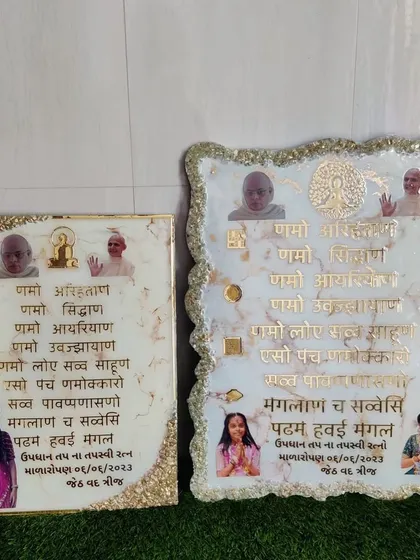 णमो अरिहंताण
णमो सिद्धाण
णमो आयरियाण
णमो उवज्झायाण
णमो लोए सव्व साहूण
एसो पंच णमोक्कारो
सव्व पावप्पणासणो
मंगलाणं च सव्वेसि
पढमं हवई मंगल
ઉપધાન તપ ના તપસ્વી રત્ન
માળારોપણ ૦૬/૦૬/૨૦૨૩
જેઠ વદ ત્રીજ
णमो अरिहंताण
णमो सिद्धाण
णमो आयरियाण
णमो उवज्झायाण
णमो लोए सव्व साहूण
एसो पंच णमोक्कारो
सव्व पावप्पणासणो
मंगलाणं च सव्वेसि
पढमं हवई मंगल
ઉપધાન તપ ના તપસ્વી રત્નો
માળારોપણ ૦૬/૦૬/૨૦૨૩
જેઠ વદ ત્રીજ